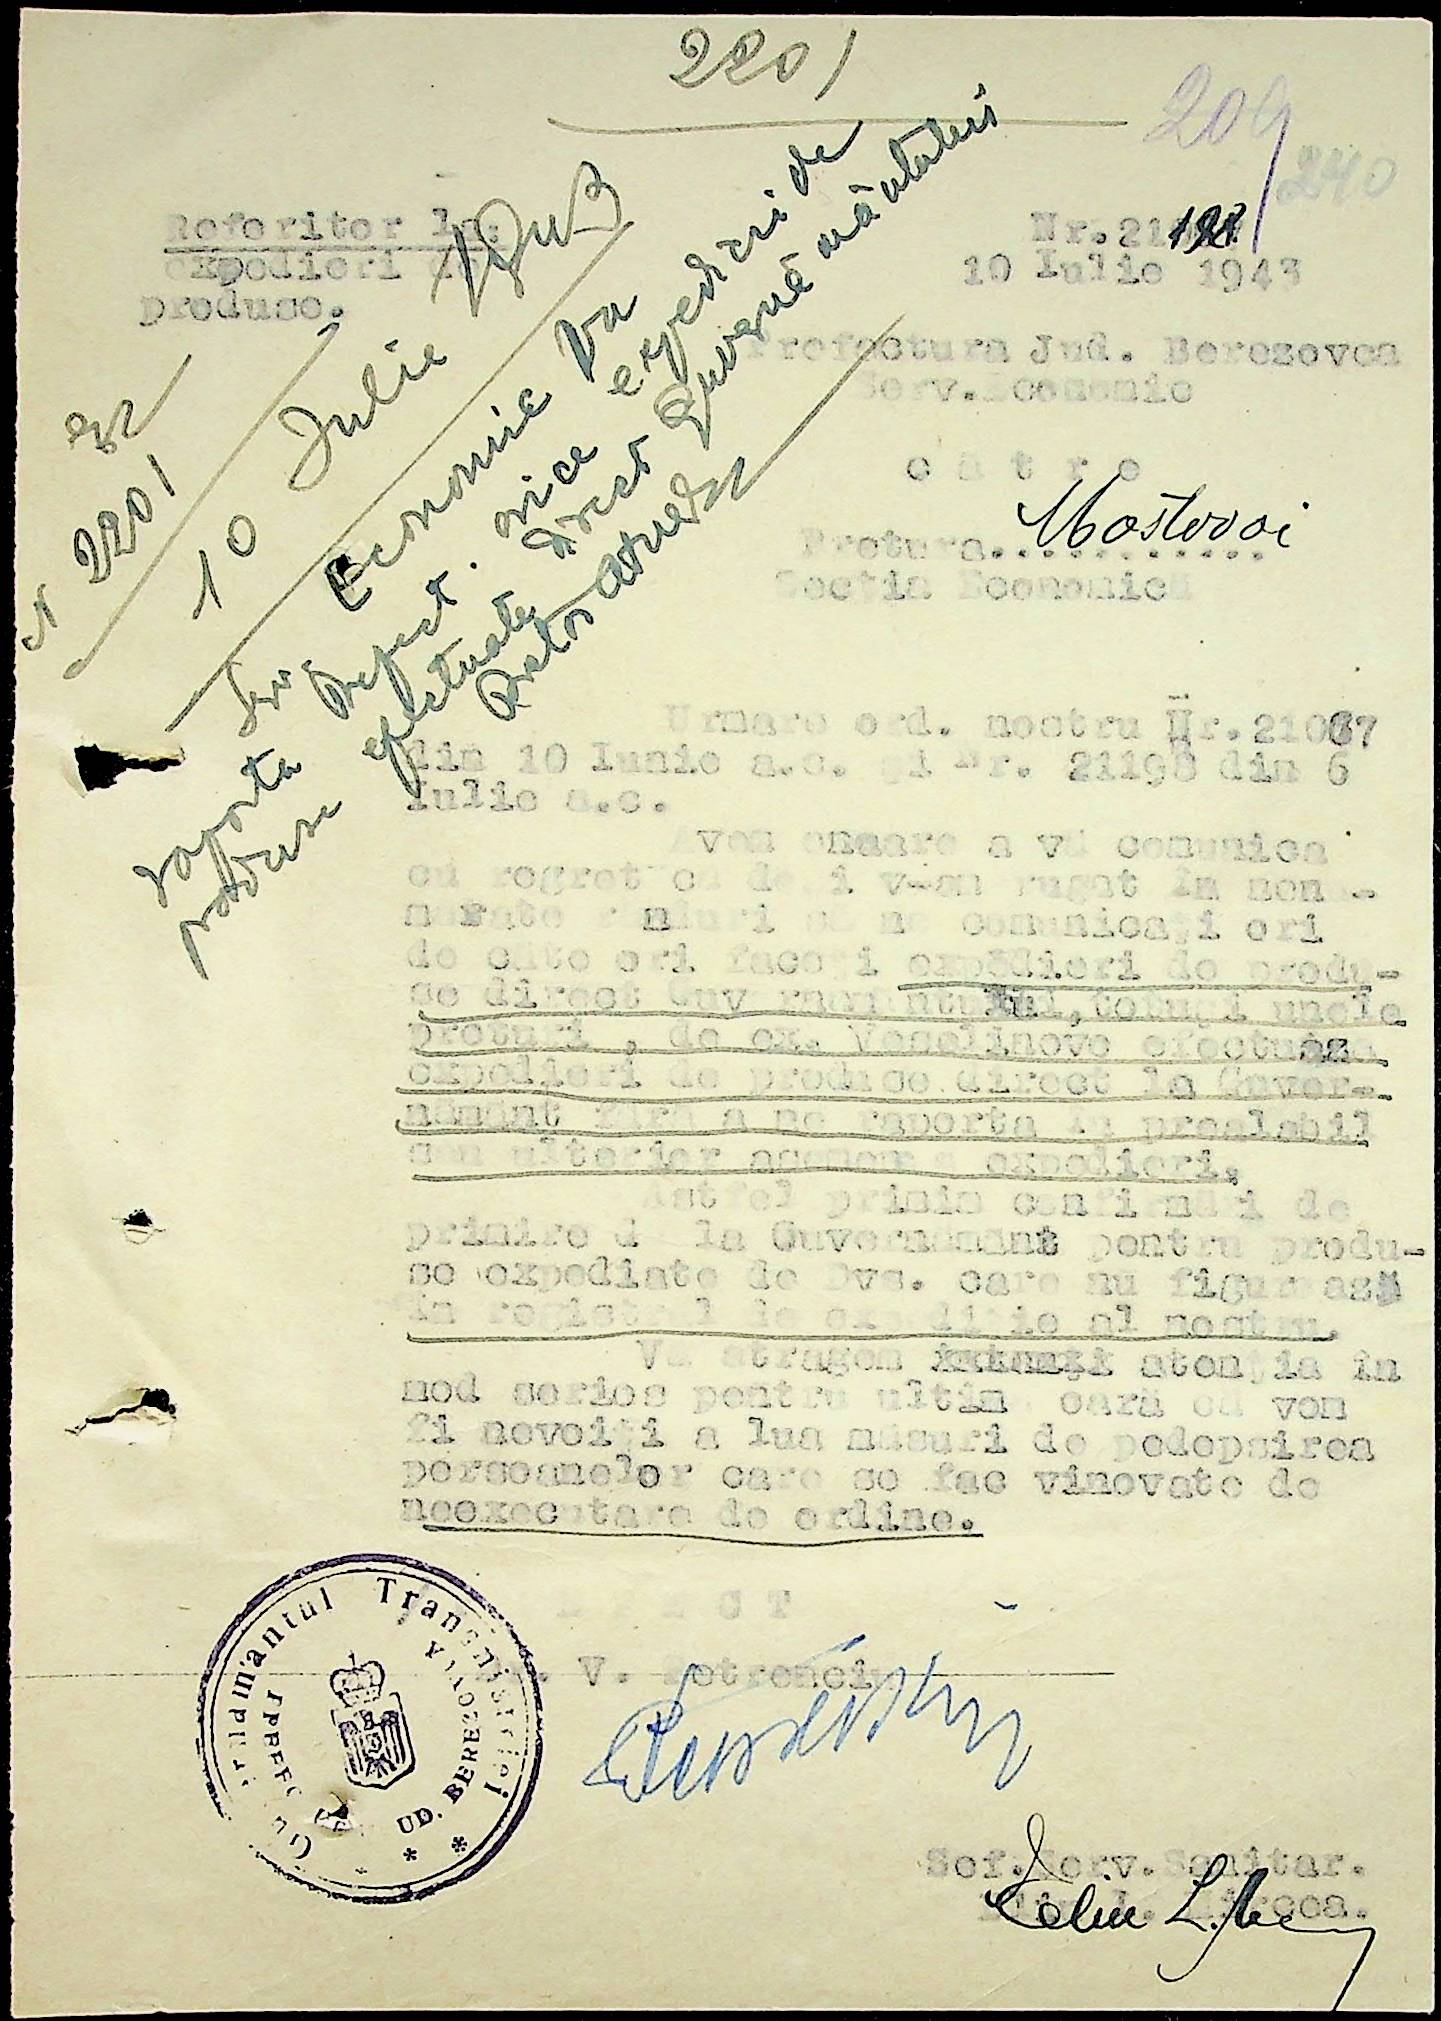 2201
209
240
Referitor la:
expedieri de
produse.
Nr.21
10 Iulie 1943
Prefectura Jud. Berezovca
Serv.Economic
către
Pretura............
Mostovoi
Secția Economică
N 2201
10 Iulie
Economic va
raporta prefect. orice expedieri de
produse efectuate direct Guvernământului
Urmare ord. nostru Nr.21067
din 10 Iunie a.c. și Nr. 21198 din 6
Iulie a.c.
Avem onoare a vă comunica
cu regret că deși v-am rugat în nen
merate rânduri să ne comunicați ori
de câte ori faceți expedieri de produ-
se direct Guvernământului, totuși unele
preturi, de ex. Veselinovo efectuează
expedieri de produse direct la Guver-
nământ fără a ne raporta în prealabil
sau ulterior acesore expedieri.
Astfel primim confirmări de
primire de la Guvernământ pentru produ-
se expediate de Dvs. care nu figurează
în registrul de expediție al nostru.
Vă atragem atenția în
mod serios pentru ultima oară că vom
fi nevoiți a lua măsuri de pedepsirea
persoanelor care se fac vinovate de
neexecutare de ordine.
PREFECT
V. Petrenciu
Guvernământul Transnistriei
PREFECTURA JUD. BEREZOVCA
Șef.Serv.Sanitar.
Mircea.